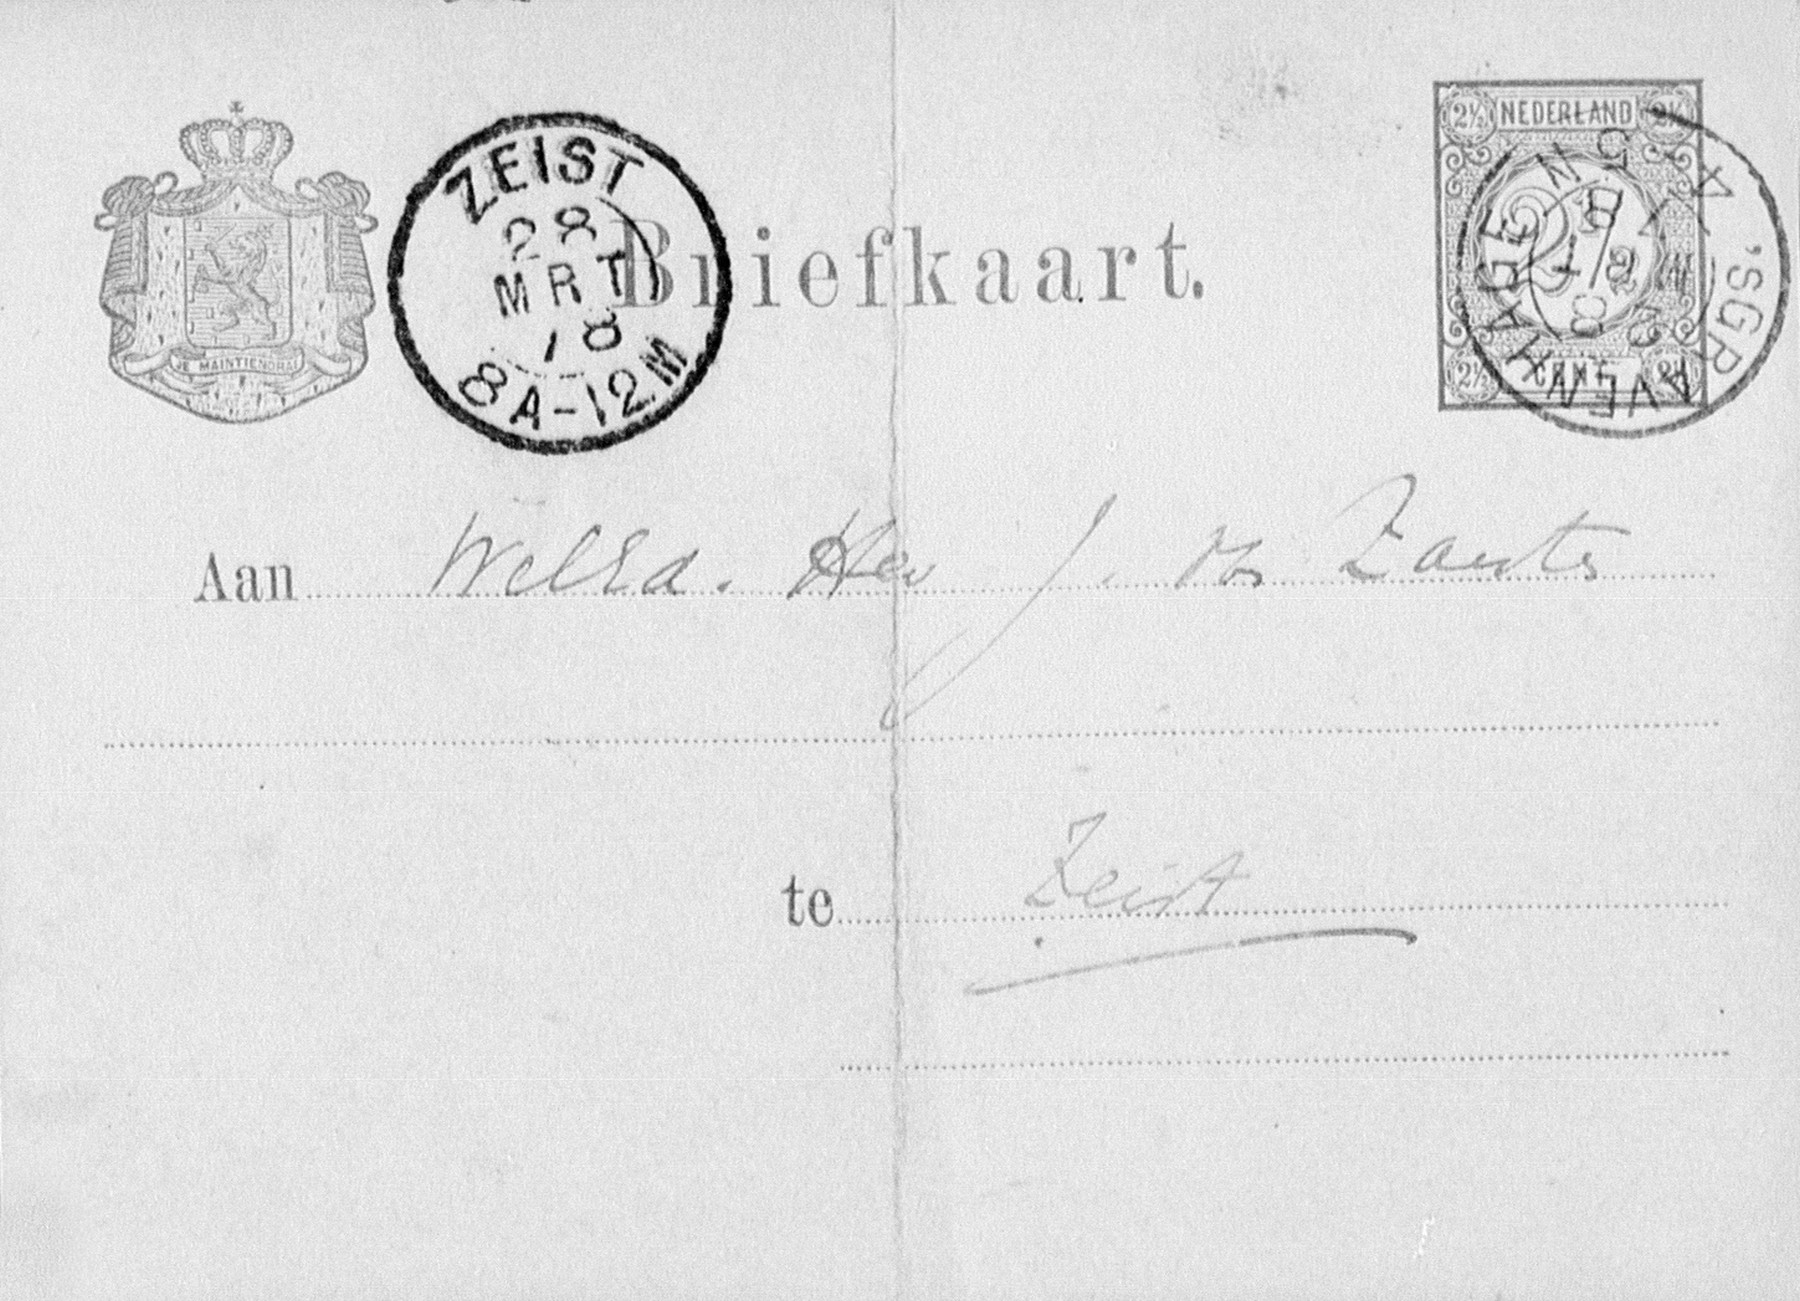 JE MAINTIENDRAI
ZEIST
28
MRT
78
8A-12M
Briefkaart.
2½ NEDERLAND 2½
2½
2½ CENT 2½
'SGRAVENHAGE
Aan WelEd. Heer J. Vos
te Zeist